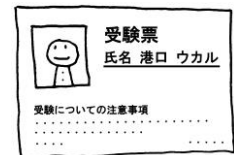 受験票
氏名 港口 ウカル
受験についての注意事項